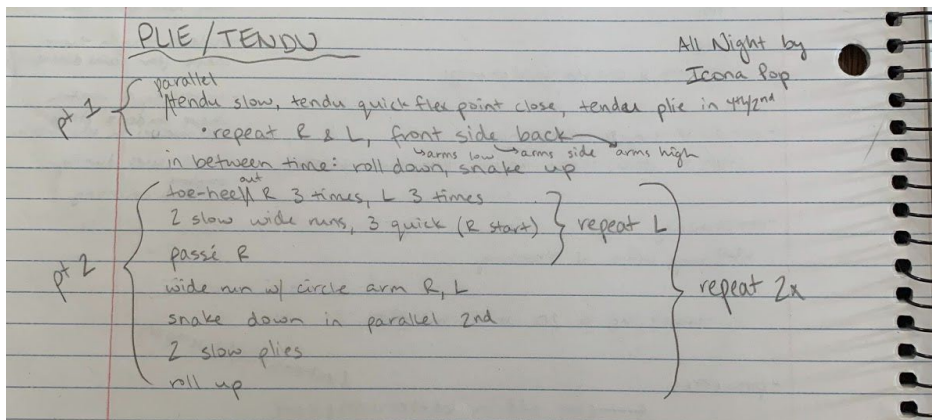 PLIE/TENDU
All Night by
Icona Pop
pt 1
parallel
tendu slow, tendu quick flex point close, tendu plie in 4th/2nd
• repeat R & L, front side back
↳arms low →arms side arms high
in between time: roll down, snake up
pt 2
toe-heel out R 3 times, L 3 times
2 slow wide runs, 3 quick (R start)
passé R
repeat L
wide run w/ circle arm R, L
snake down in parallel 2nd
2 slow plies
roll up
repeat 2x